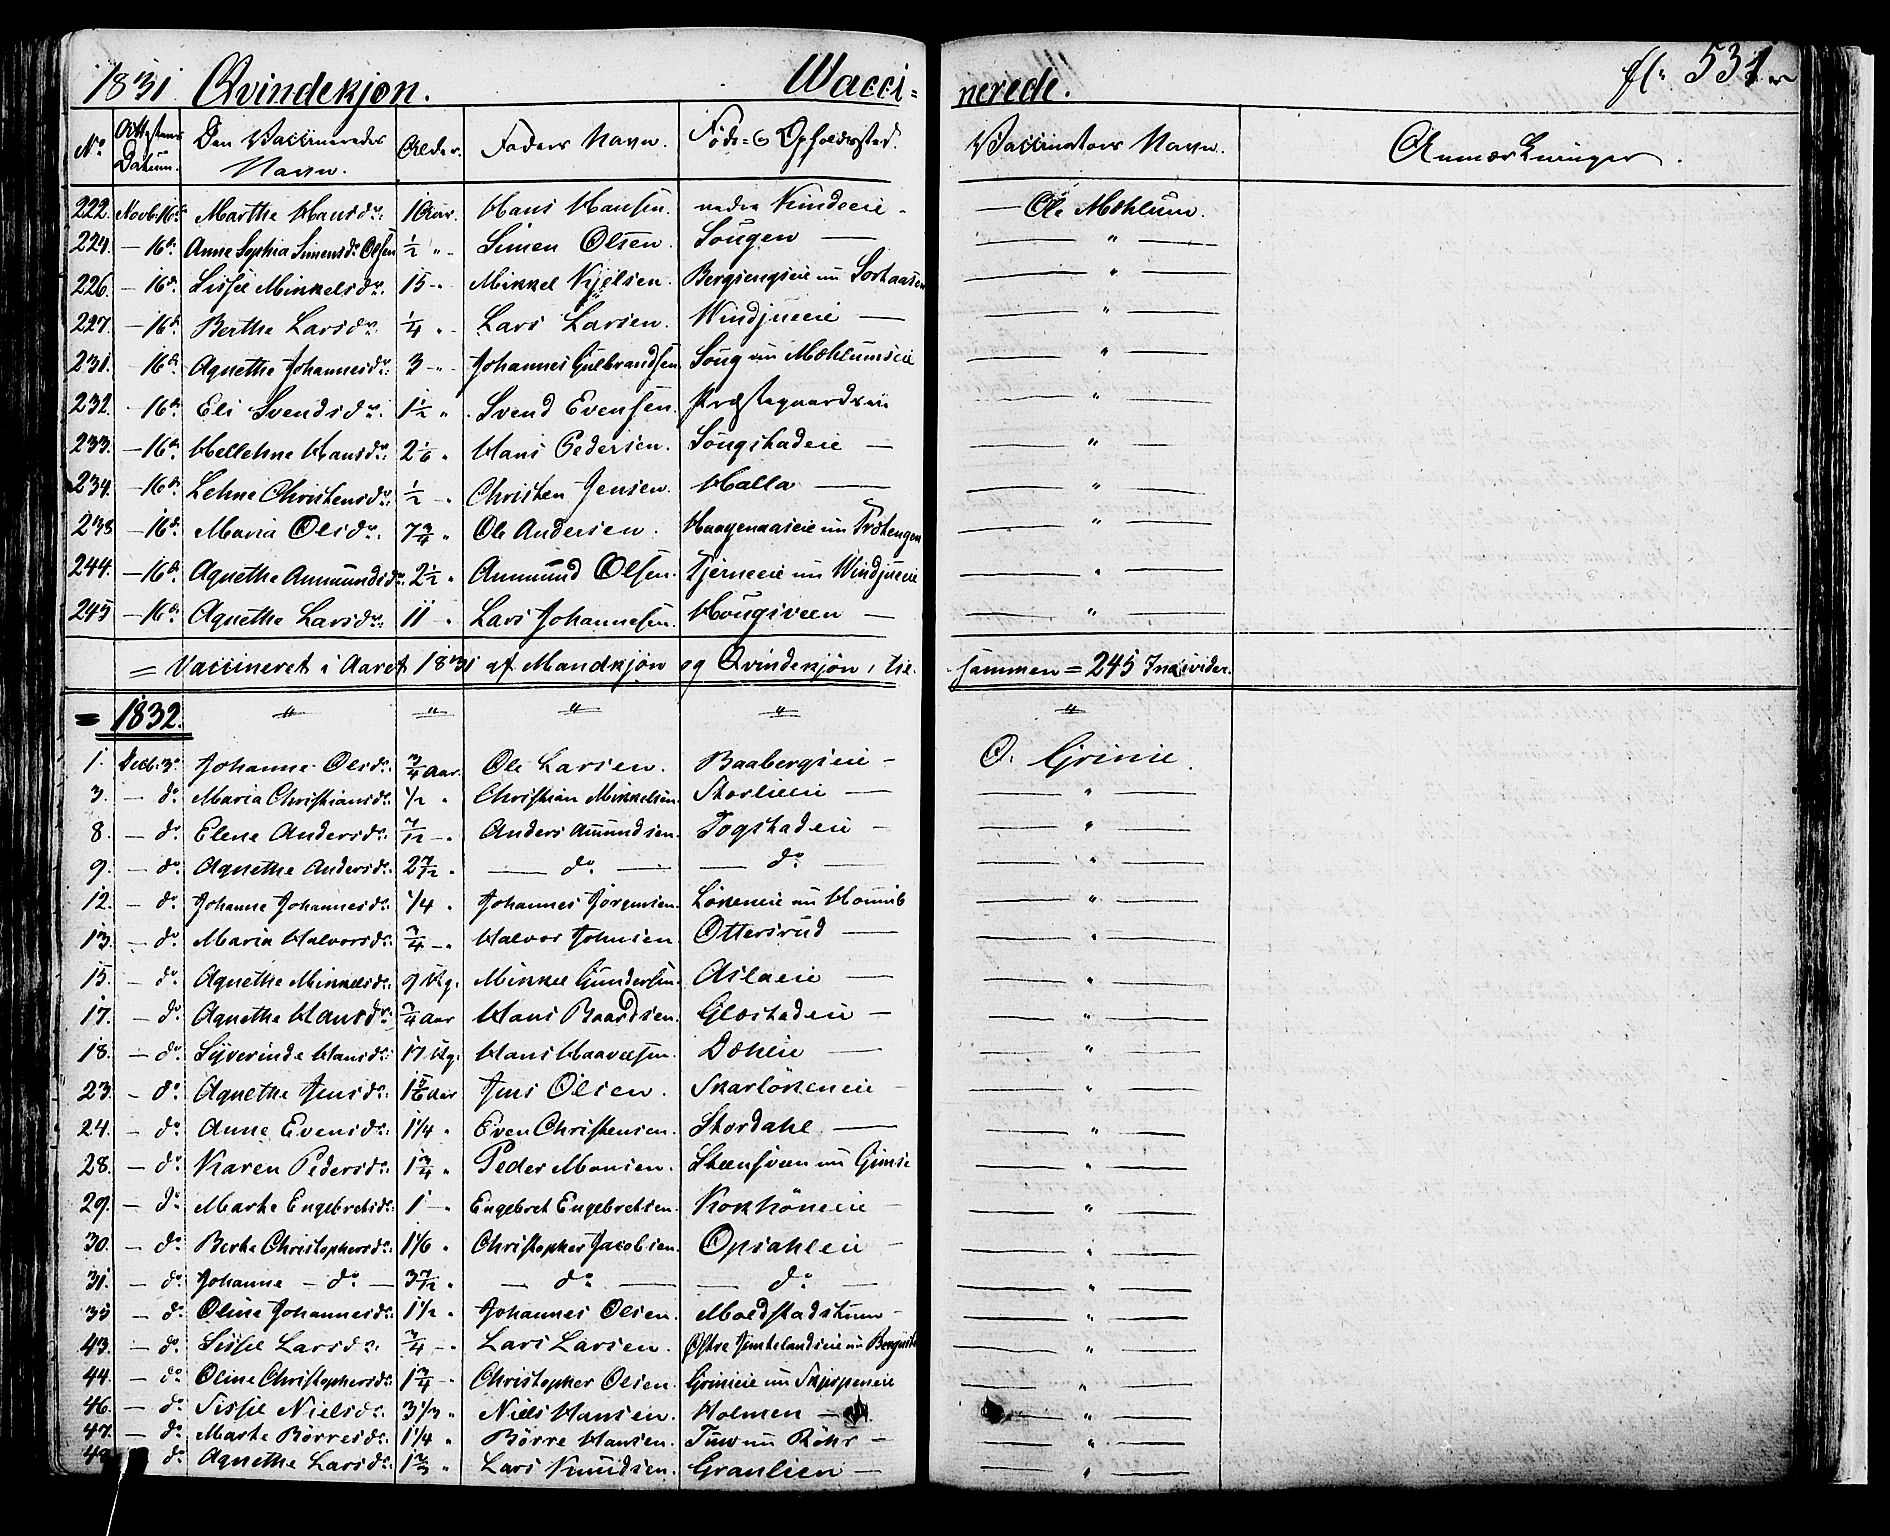 1831 Qvindekjøn. Wacci= nerede. fl. 531
No Attestens Datum. Den Vaccineredes Navn. Alder. Faders Navn. Føde= & Opholdssted. Vaccinators Navn. Anmærkninger.
222. Novb. 16d. Marthe Hansdr. 1 Aar. Hans Hansen. nedre — Ole Mæhlum.
224. — 16d. Anne Sophia Simensdr Olsen 1/2 " Simen Olsen. Sougen — — " —
226. — 16d. Sissel Mikkelsdr. 15 - " Mikkel Kjelsen. Bergsengeie un — " —
227. — 16d. Berthe Larsdr. 1/4 " Lars Larsen. Windjueeie — — " —
231. — 16d. Agnethe Johannesdr. 3 - " Johannes Gulbrandsen. Soug un Mæhlumseie — " —
232. — 16d. Eli Svendsdr. 1 1/2 " Svend Evensen. Præstegaardseie — " —
233. — 16d. Hellehne Hansdr. 2 1/6 " Hans Pedersen. Sougstadeie — — " —
234. — 16d. Lehne Christensdr. 1/2 - " Christen Jensen. Halla — — " —
238 — 16d. Maria Olsdr. 7 3/4 " Ole Andersen. Haagenaaseie un — " —
244. — 16d. Agnethe Ammundsdr. 2 1/2 " Ammund Olsen. Tjerneeie un Windjueeie — " —
245 — 16d. Agnethe Larsdr. 11 - " Lars Johannesen. Hougsveen — — " —
= Vaccineret i Aaret 1831 af Mandkjøn og Qvindekjøn, til= sammen = 245 Individer.
= 1832. " " " " "
1. Decb. 3d Johanne Olsdr. 3/4 Aar. Ole Larsen. Baabergseie — O. Grimse.
3. — do Maria Christiansdr. 1/2 " Christian Mikkelsen. Storlieeie — — " —
8. — do Elene Andersdr. 7/12 - " Anders Amundsen. Togstadeie — — " —
9. — do Agnethe Andersdr. 2 7/12 " — do — — do — — " —
12. — do Johanne Johannesdr. 1/4 " Johannes Jörgensen. Lökeneie un — " —
13. — do Maria Halvorsdr. 3/4 - " Halvor Johnsen Ottersrud — — " —
15. — do Agnethe Mikkelsdr. 9 Ug. Mikkel Gundersen. Aslaeie — — " —
17. — do Agnethe Hansdr. 3/4 Aar Hans Baardsen. Glæstadeie — — " —
18. — do Syverinde Hansdr. 17 Ug. Hans Haavelsen. Dæhleie — — " —
23. — do Agnethe Jensdr. 1 5/6 Aar Jens Olsen. Skarlökeneie — " —
24. — do Anne Evensdr. 1 1/4 " Even Christensen. Stordahl — — " —
28. — do Karen Pedersdr. 1 3/4 " Peder Monsen. Steensveen un Gimse — " —
29. — do Marte Engebretsdr. 1 - " Engebret Engebretsen. — — " —
30. — do Berte Christophersdr. 1 1/6 " Christopher Jacobsen. Opsahleie — — " —
31. — do Johanne — do — 3 7/12 " — do — — do — — " —
35 — do Oline Johannesdr. 1 1/2 " Johannes Olsen. Moldstadstuen — — " —
43. — do Sissel Larsdr. 3/4 - " Lars Larsen. Østre un — " —
44. — do Oline Christophersdr. 1 3/4 - Christopher Olsen. Grimseie un — " —
46. — do Sissel Nielsdr. 3 1/3 " Niels Hansen. Holmen — — " —
47. — do Marte Börresdr. 1 1/4 " Börre Hansen. Tuv un Röhr — — " —
do Agnethe Larsdr. 1 2/3 " Lars Knudsen. Granlien — — " —